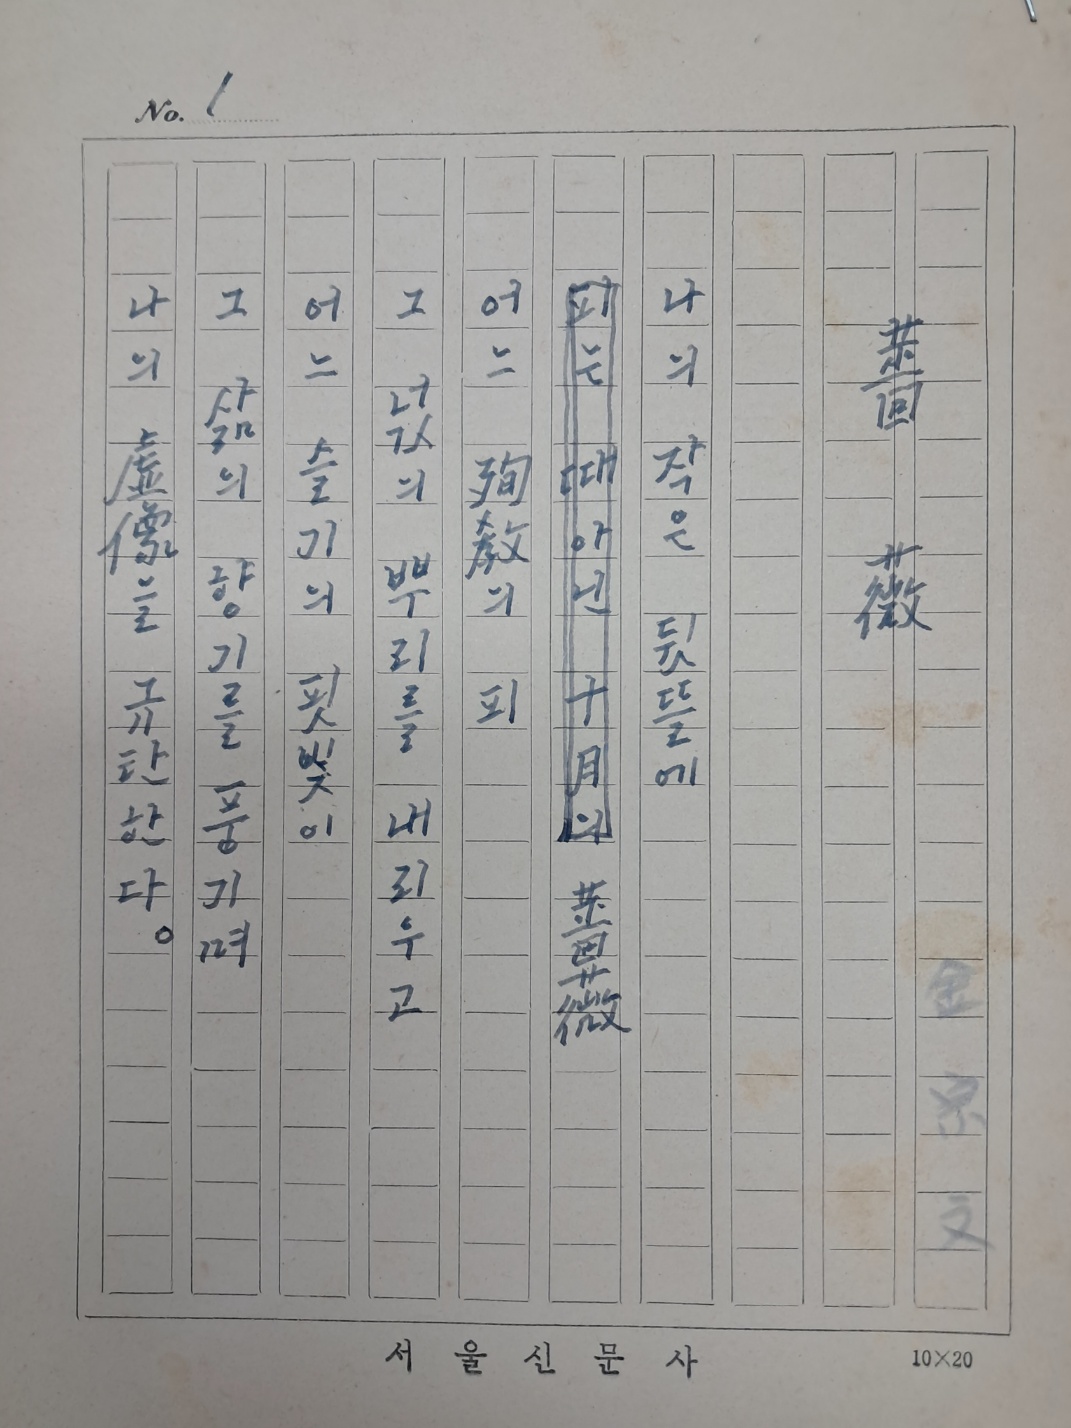 No. 1
薔薇
나의 작은 뒷뜰에
피는 때아닌 十月의 薔薇
어느 殉敎의 피
그 넋의 뿌리를 내리우고
어느 슬기의 핏빛이
그 삶의 향기를 풍기며
나의 虛像을 규탄한다。
서울신문사
10×20